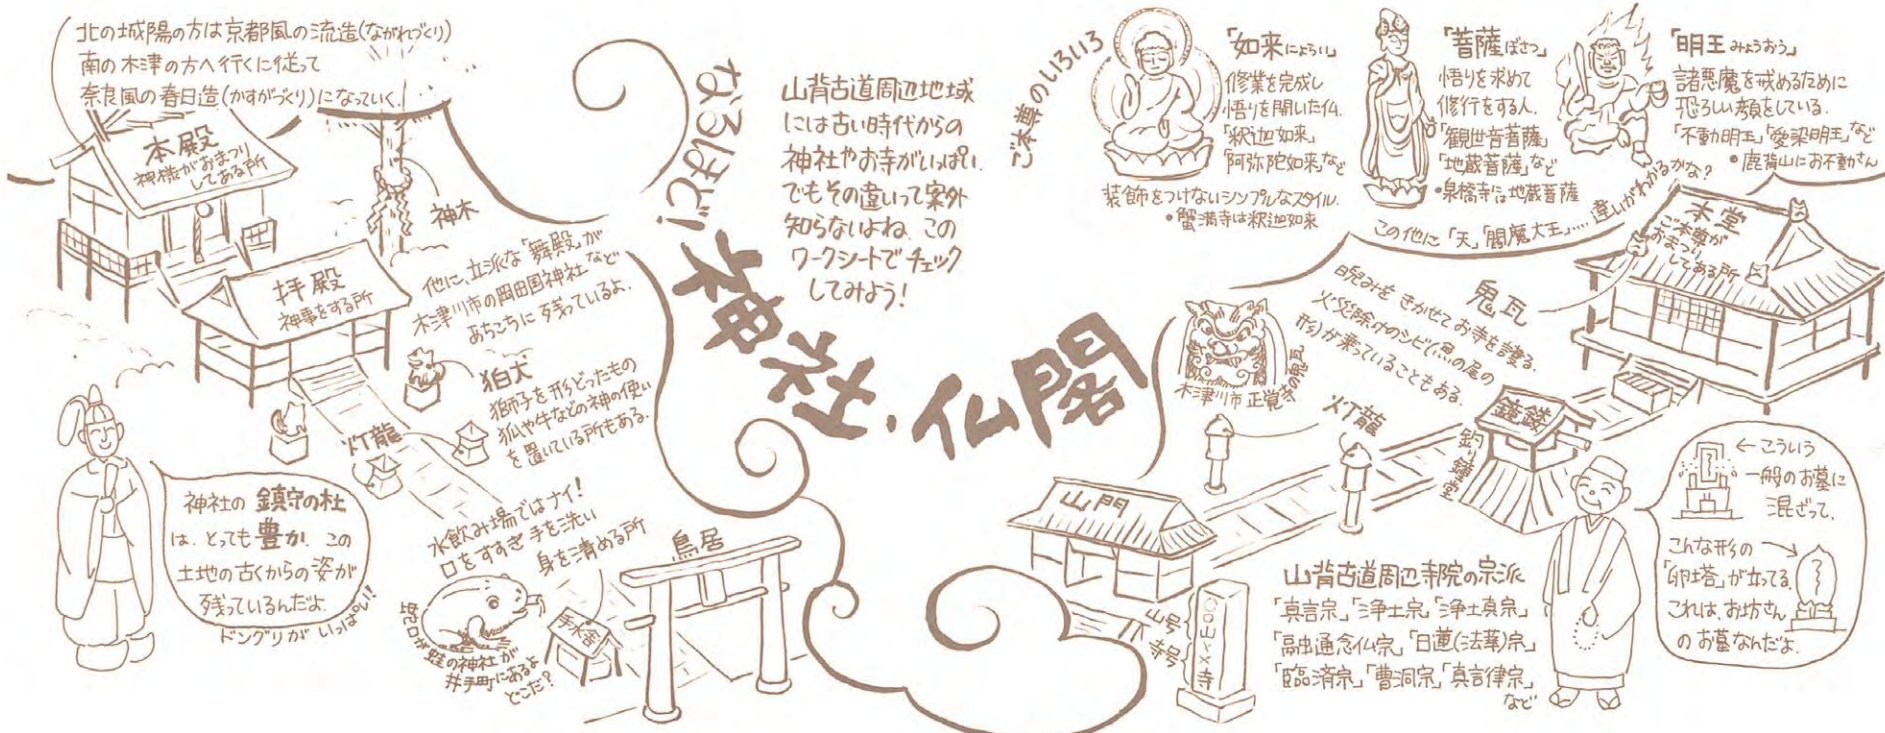 北の城陽の方は京都風の流造(ながれづくり)
南の木津の方へ行くに従って
奈良風の春日造(かすがづくり)になっていく.
本殿
神様がおまつり
してある所
神木
拝殿
神事をする所
他に、立派な「舞殿」が
木津川市の岡田国神社など
あちこちに残っているよ.
狛犬
獅子を形どったもの
狐や牛などの神の使い
を置いている所もある.
灯龍
神社の鎮守の杜
は、とっても豊か、この
土地の古くからの姿が
残っているんだよ.
ドングリがいっぱい!!
水飲み場ではナイ!
口をすすぎ手を洗い
身を清める所
手水舎
蛇口が蛙の神社が
井手町にあるよ
どこだ?
鳥居
なるほど!
神社・仏閣
山背古道周辺地域
には古い時代からの
神社やお寺がいっぱい.
でもその違いって案外
知らないよね、この
ワークシートでチェック
してみよう!
ご本尊のいろいろ
「如来にょらい」
修業を完成し
悟りを開いた仏.
「釈迦如来」
「阿弥陀如来」など
装飾をつけないシンプルなスタイル.
•蟹満寺は釈迦如来
「菩薩ぼさつ」
悟りを求めて
修行をする人.
「観世音菩薩」
「地蔵菩薩」など
•泉橋寺は地蔵菩薩
「明王みょうおう」
諸悪魔を戒めるために
恐ろしい顔をしている.
「不動明王」「愛染明王」など
•鹿背山にお不動さん
この他に「天」「閻魔大王」.....違いがわかるかな?
本堂
ご本尊が
おまつり
してある所
鬼瓦
睨みをきかせてお寺を護る.
火災除けのシビ(魚の尾の
形)が乗っていることもある.
木津川市 正覚寺の鬼瓦
灯龍
鐘楼
釣り鐘堂
山門
山号
寺号
〇〇山××寺
山背古道周辺寺院の宗派
「真言宗」「浄土宗」「浄土真宗」
「融通念仏宗」「日蓮(法華)宗」
「臨済宗」「曹洞宗」「真言律宗」
など
←こういう
一般のお墓に
混ざって、
こんな形の
「卵塔」が立ってる
これは、お坊さん
のお墓なんだよ.